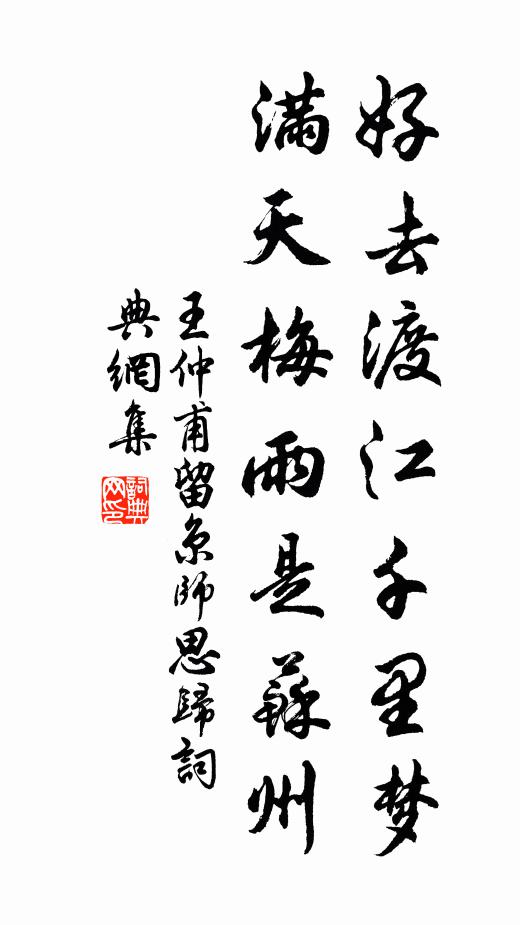 好去渡江千里梦
满天梅雨是蘇州
王仲甫留京师思歸詞
典網集
詞典网印